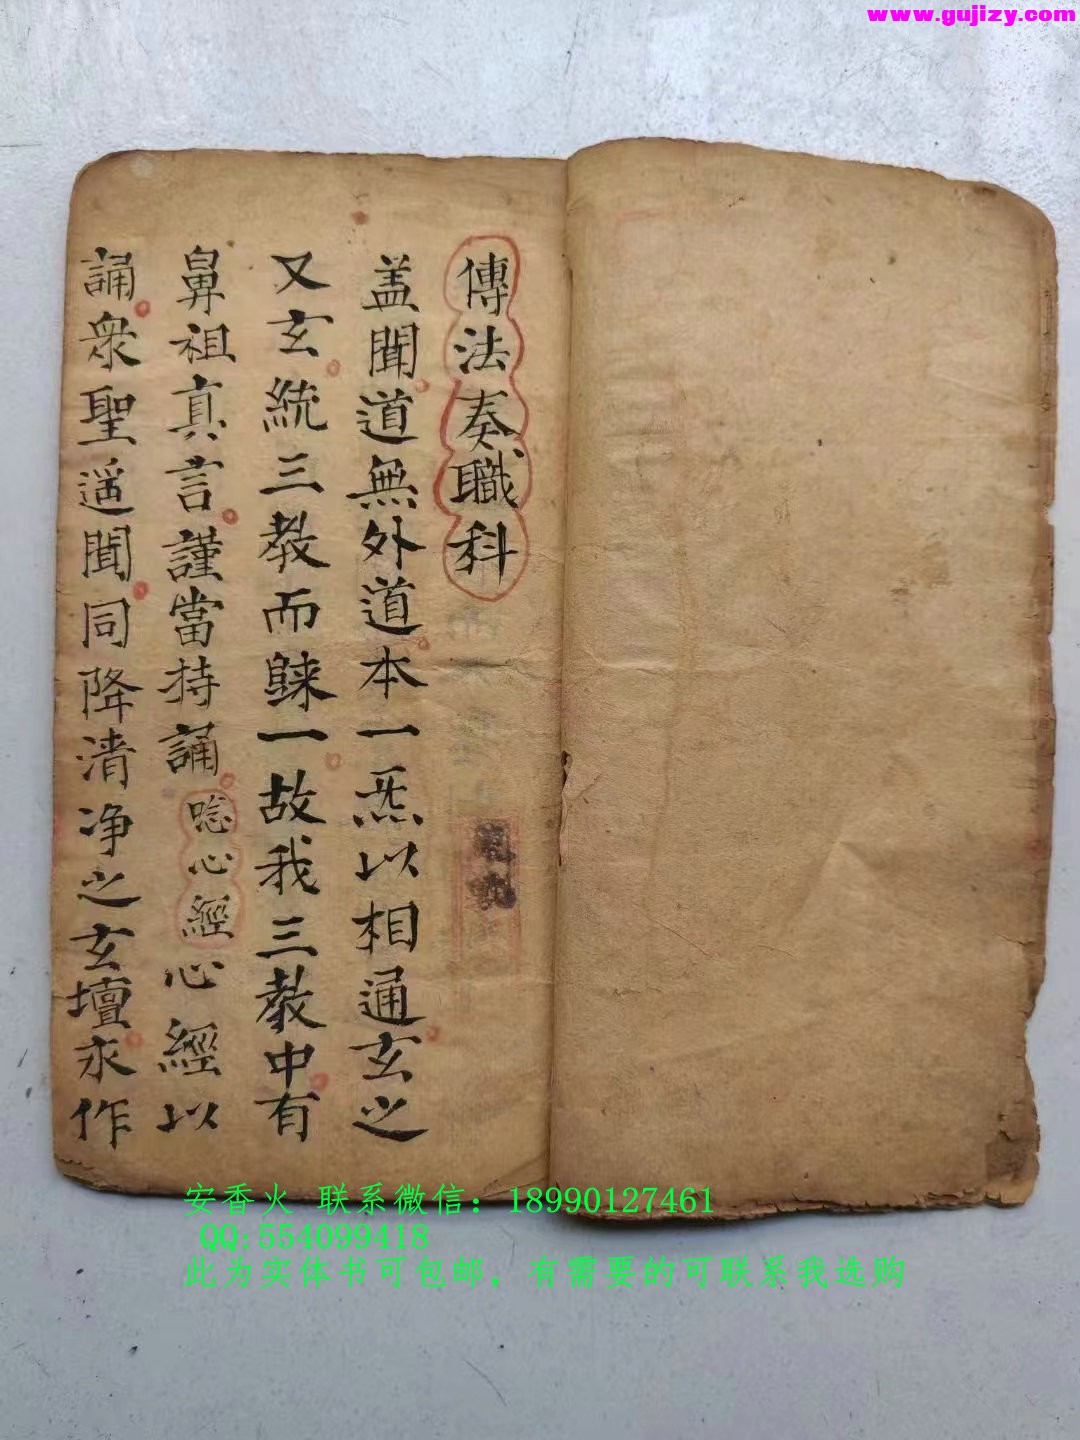 www.gujizy.com
傳法奏職科
盖聞道無外道本一炁以相通玄之
又玄統三教而歸一故我三教中有
鼻祖真言謹當持誦唸心經心經以
誦衆聖遥聞同降清净之玄壇永作
安香火 联系微信：18990127461
QQ:554099418
此为实体书可包邮，有需要的可联系我选购